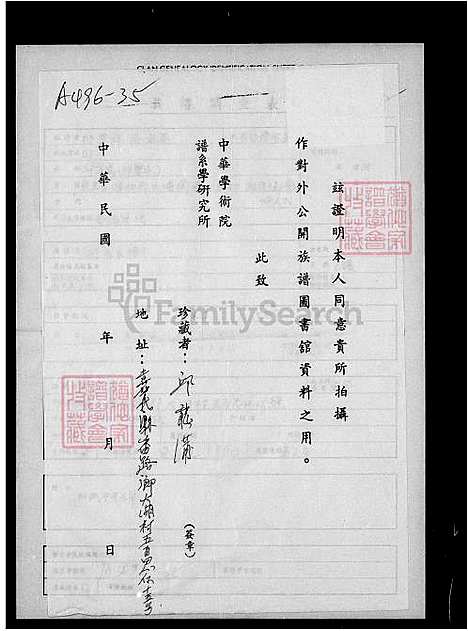 CLAN GENEALOGY IDENTIFICATION SHEET
A496-35
玆證明本人同意貴所拍攝
作對外公開族譜圖書舘資料之用。
此致
中華學術院
譜系學研究所
珍藏者：邱
(簽章)
地址：嘉義縣番路鄉大湖村五百
中華民國 年 月 日
FamilySearch